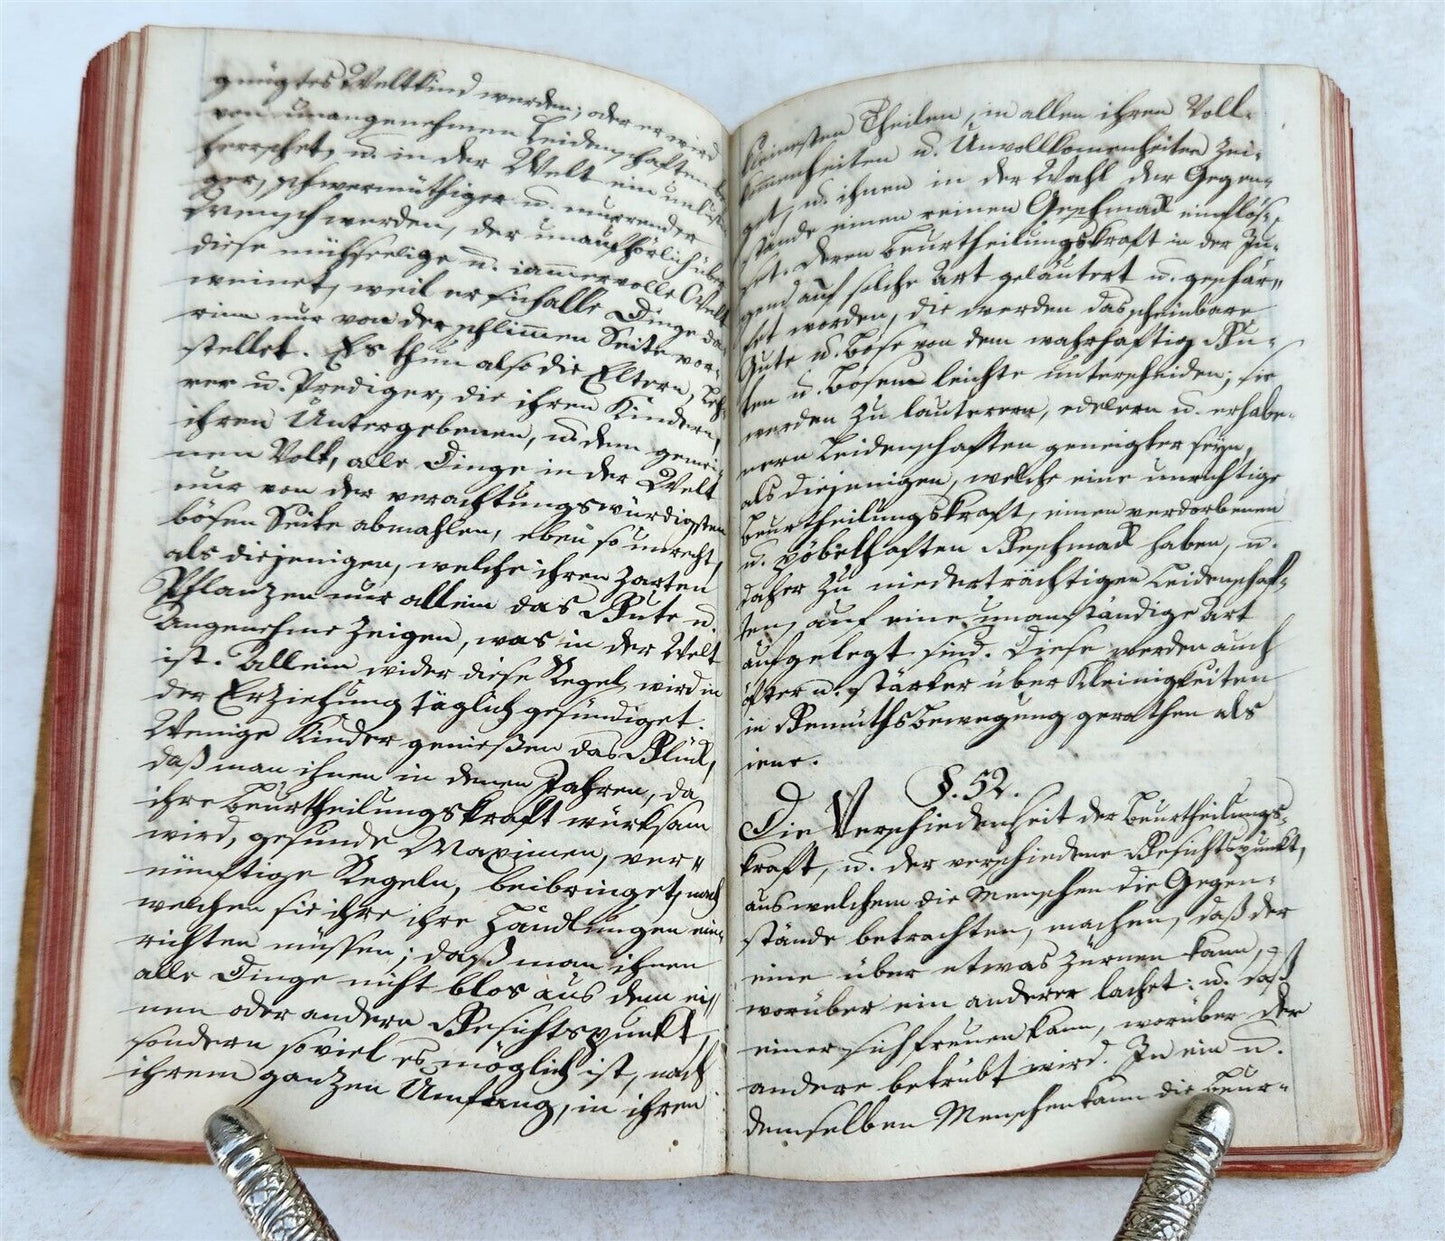 gnügtes Weltkind werden; oder er wird
von unangenehmen Leidenschaften be-
herrschet, u. in der Welt ein unlusti-
ger, schwermüthiger u. murrender
Mensch werden, der unaufhörlich über
diese mühseelige u. iammervolle Welt
weinet, weil er sich alle Dinge da-
rinn nur von der schlimmen Seite vor-
stellet. Es thun also die Eltern, Leh-
rer u. Prediger, die ihren Kindern,
ihren Untergebenen, u. dem gemei-
nen Volk, alle Dinge in der Welt
nur von der verachtungswürdigsten
bösen Seite abmahlen, eben so unrecht,
als diejenigen, welche ihren zarten
Pflanzen nur allein das Gute u.
Angenehme zeigen, was in der Welt
ist. Allein wider diese Regel wird in
der Erziehung täglich gesündiget.
Wenige Kinder genießen das Glück,
daß man ihnen in denen Jahren, da
ihre Beurtheilungskraft würksam
wird, gesunde Maximen, ver-
nünftige Regeln, beibringet, nach
welchen sie ihre ihre Handlungen ein-
richten müssen; daß man ihnen
alle Dinge nicht blos aus dem ei-
nen oder andern Gesichtspunkt,
sondern soviel es möglich ist, nach
ihrem ganzen Umfang, in ihren
kleinesten Theilen, in allen ihren Voll-
kommenheiten u. Unvollkomenheiten zei-
get, u. ihnen in der Wahl der Gegen-
stände einen reinen Geschmack einflös-
set. Deren Beurtheilungskraft in der Ju-
gend auf solche Art geläutert u. geschär-
fet worden, die werden das scheinbare
Gute u. Böse von dem wahrhaftig Gu-
ten u. Bösen leichte unterscheiden; sie
werden zu lauterern, edelern u. erhabe-
nern Leidenschaften geneigter seyn,
als diejenigen, welche eine unrichtige
Beurtheilungskraft, einen verdorbenen
u. pöbelhaften Geschmack haben, u.
daher zu niederträchtigen Leidenschaf-
ten, auf eine unanständige Art
aufgelegt sind. Diese werden auch
öfter u. stärker über Kleinigkeiten
in Gemüthsbewegung gerathen als
iene.
§. 52.
Die Verschiedenheit der Beurtheilungs-
kraft, u. der verschiedene Gesichtspunkt,
aus welchem die Menschen die Gegen-
stände betrachten, machen, daß der
eine über etwas zürnen kann,
worüber ein anderer lachet: u. daß
einer sich freuen kann, worüber der
andere betrübt wird. In ein u.
demselben Menschen kann die Beur-